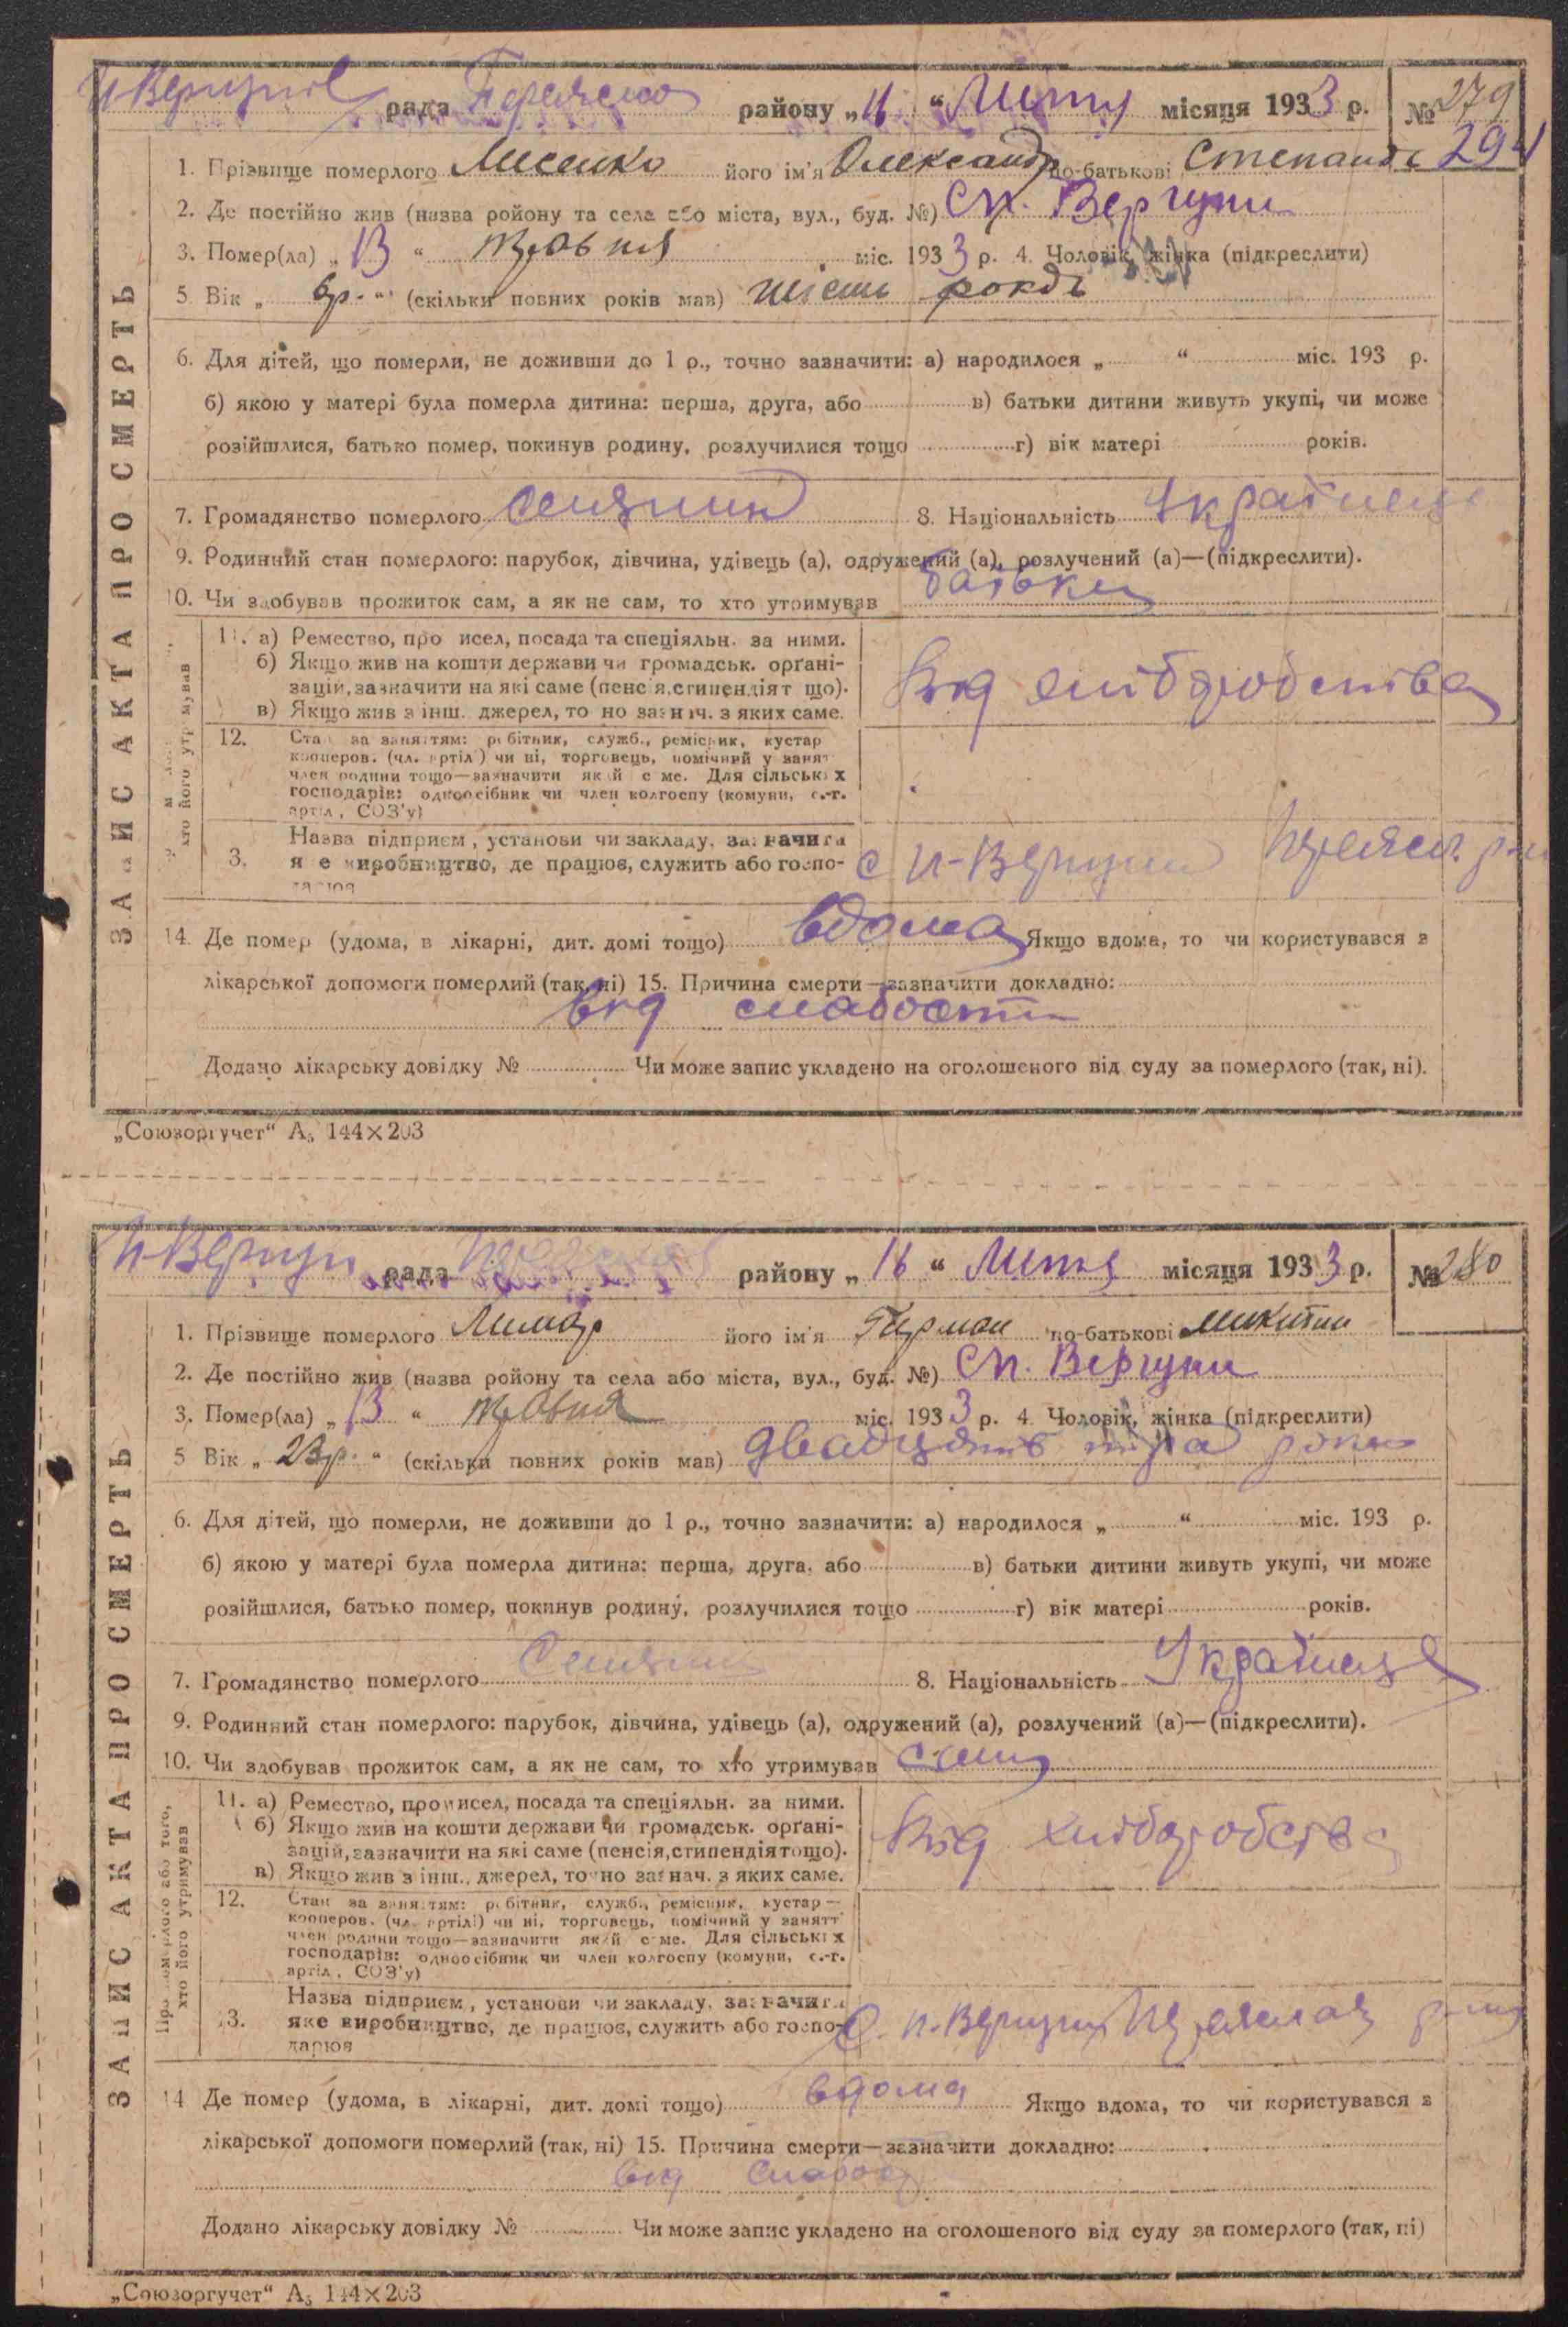 П-Вергунів рада Переяслав району „11“ Лютня місяця 1933 р. № 279
294
1. Прізвище померлого Лисенко його ім'я Олександр по-батькові Степанов
2. Де постійно жив (назва ройону та села або міста, вул., буд. №) СП. Вергуни
3. Помер(ла) „13“ травня міс. 1933 р. 4. Чоловік, жінка (підкреслити)
5 Вік „6р.“ (скільки повних років мав) шість років
6. Для дітей, що померли, не доживши до 1 р., точно зазначити: а) народилося „ “ міс. 193 р.
б) якою у матері була померла дитина: перша, друга, або в) батьки дитини живуть укупі, чи може
розійшлися, батько помер, покинув родину, розлучилися тощо г) вік матері років.
7. Громадянство померлого селянин 8. Національність Українець
9. Родинний стан померлого: парубок, дівчина, удівець (а), одружений (а), розлучений (а)—(підкреслити).
10. Чи здобував прожиток сам, а як не сам, то хто утримував батьки
ЗАПИС АКТА ПРО СМЕРТЬ
хто його утримував
11. а) Ремество, промисел, посада та спеціяльн. за ними.
б) Якщо жив на кошти держави чи громадськ. орґані-
зацій, зазначити на які саме (пенсія, стипендіят що).
в) Якщо жив з інш. джерел, то но зазнач. з яких саме.
від хліборобства
12. Стан за заняттям: робітник, служб., ремісник, кустар
кооперов. (чл. артілі) чи ні, торговець, помічний у занят
член родини тощо—зазначити який саме. Для сільських
господарів: одноосібник чи член колгоспу (комуни, с.-г.
артіл, СОЗ'у)
3. Назва підприєм, установи чи закладу, зазначити
яке виробництво, де працює, служить або госпо-
дарює
с П-Вергуни Переясл. р-ну
14. Де помер (удома, в лікарні, дит. домі тощо) вдома Якщо вдома, то чи користувався з
лікарської допомоги померлий (так, ні) 15. Причина смерти—зазначити докладно:
від слабости
Додано лікарську довідку № Чи може запис укладено на оголошеного від суду за померлого (так, ні).
„Союзоргучет“ А₅ 144×203
П-Вергун рада Переяслав району „16“ Лютня місяця 1933 р. № 280
1. Прізвище померлого Лимар його ім'я Герман по-батькові Микитин
2. Де постійно жив (назва ройону та села або міста, вул., буд. №) СП. Вергуни
3. Помер(ла) „13“ травня міс. 1933 р. 4. Чоловік, жінка (підкреслити)
5 Вік „23р.“ (скільки повних років мав) двадцять три роки
6. Для дітей, що померли, не доживши до 1 р., точно зазначити: а) народилося „ “ міс. 193 р.
б) якою у матері була померла дитина: перша, друга, або в) батьки дитини живуть укупі, чи може
розійшлися, батько помер, покинув родину, розлучилися тощо г) вік матері років.
7. Громадянство померлого Селянин 8. Національність Українець
9. Родинний стан померлого: парубок, дівчина, удівець (а), одружений (а), розлучений (а)—(підкреслити).
10. Чи здобував прожиток сам, а як не сам, то хто утримував
ЗАПИС АКТА ПРО СМЕРТЬ
Про померлого або того,
хто його утримував
11. а) Ремество, промисел, посада та спеціяльн. за ними.
б) Якщо жив на кошти держави чи громадськ. орґані-
зацій, зазначити на які саме (пенсія, стипендіят тощо).
в) Якщо жив з інш., джерел, точно зазнач. з яких саме.
від хліборобства
12. Стан за заняттям: робітник, служб., ремісник, кустар—
кооперов. (чл. артілі) чи ні, торговець, помічний у занятт
член родини тощо—зазначити який саме. Для сільських
господарів: одноосібник чи член колгоспу (комуни, с.-г.
артіл, СОЗ'у)
13. Назва підприєм, установи чи закладу, зазначити
яке виробництво, де працює, служить або госпо-
дарює
С. П.-Вергуни Переяслав р-ну
14 Де помер (удома, в лікарні, дит. домі тощо) вдома Якщо вдома, то чи користувався з
лікарської допомоги померлий (так, ні) 15. Причина смерти—зазначити докладно:
від слабост
Додано лікарську довідку № Чи може запис укладено на оголошеного від суду за померлого (так, ні)
„Союзоргучет“ А₅ 144×203